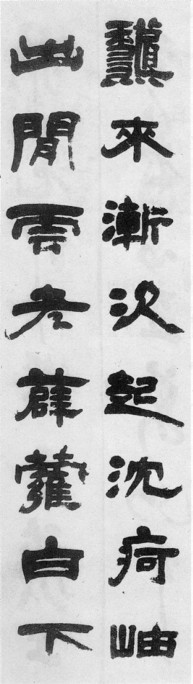 來漸次起沈疴岫
出閒雲老薜蘿白下